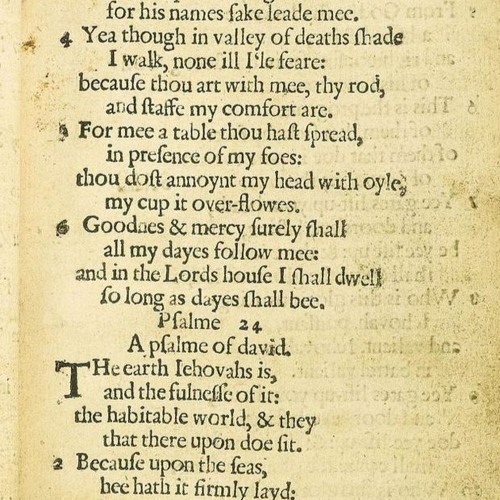 for his names ſake leade mee.
4 Yea though in valley of deaths ſhade
I walk, none ill I'le feare:
because thou art with mee, thy rod,
and ſtaffe my comfort are.
5 For mee a table thou haſt ſpread,
in preſence of my foes:
thou doſt annoynt my head with oyle,
my cup it over-flowes.
6 Goodnes & mercy ſurely ſhall
all my dayes follow mee:
and in the Lords houſe I ſhall dwell
ſo long as dayes ſhall bee.
Pſalme 24
A pſalme of david.
THe earth Iehovahs is,
and the fulneſſe of it:
the habitable world, & they
that there upon doe ſit.
2 Becauſe upon the ſeas,
hee hath it firmly layd: